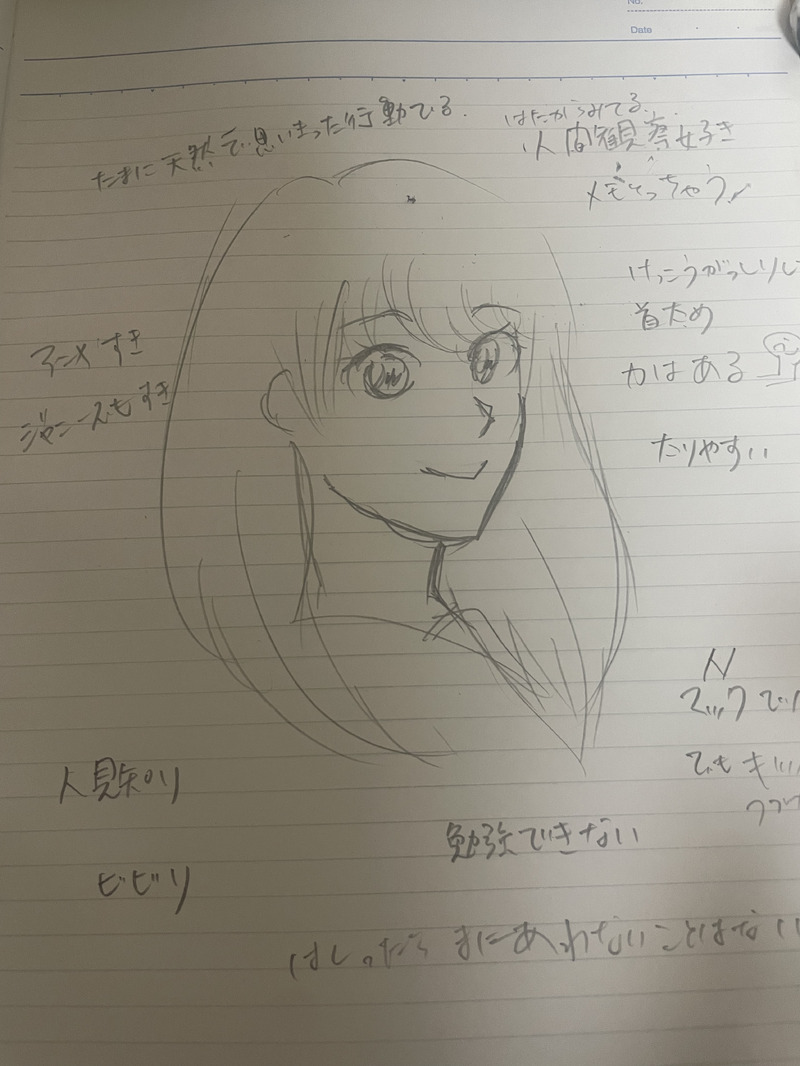 No.
Date
たまに天然で思いきった行動でる.
はたからみてる.
人間観察好き
メモとっちゃう!
けっこうがっしりして
首太め
力はある
アニメすき
ジャニーズもすき
たりやすい
N
マックで
でもキ
人見知り
勉強できない
ビビリ
はしったら まにあわないことはない